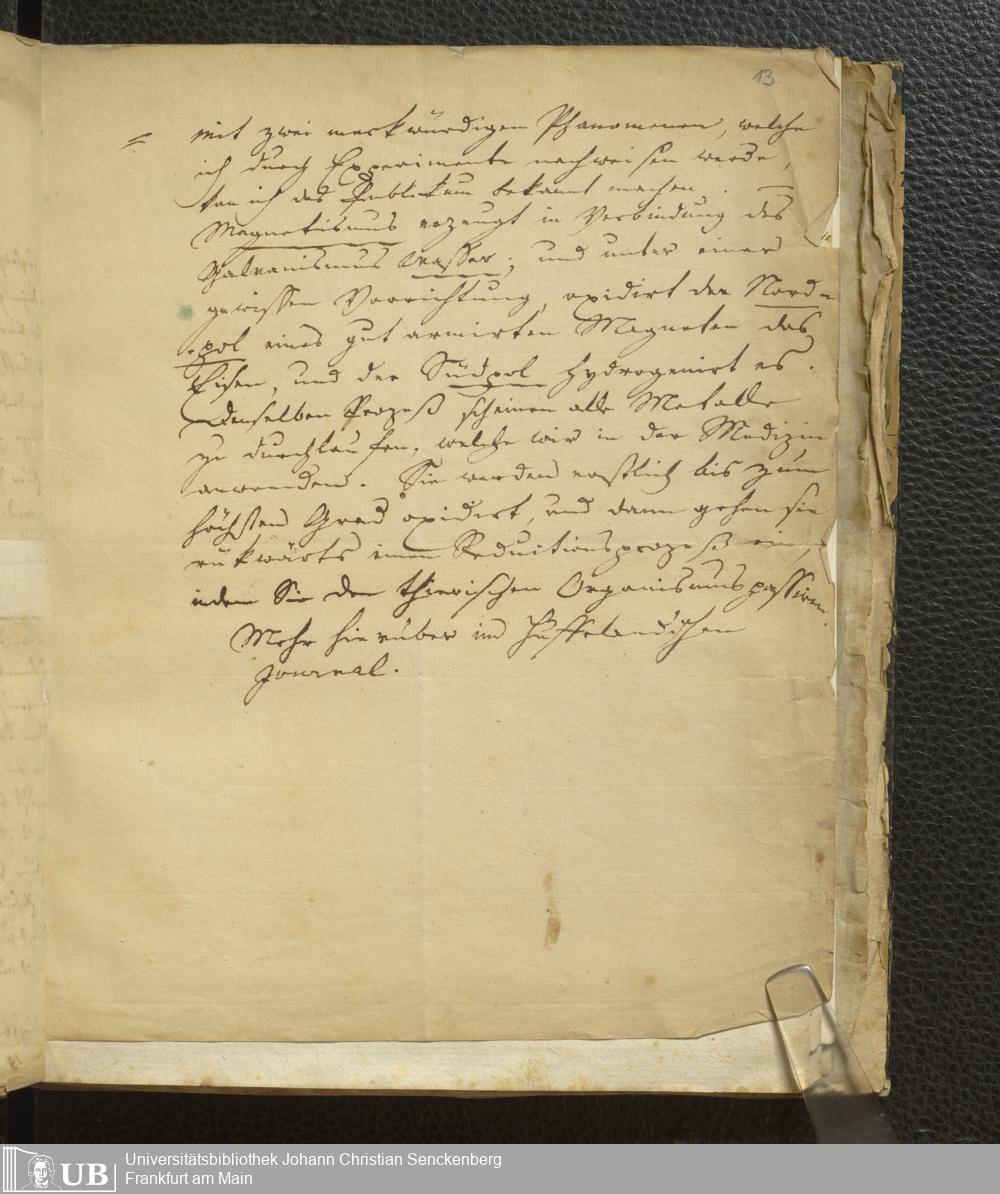 13
= mit zwei merkwürdigen Phänomenen, welche
ich durch Experimente nachweisen werde,
kan ich das Publikum bekannt machen. —
Magnetismus erzeugt in Verbindung des
Galvanismus Wasser; und unter einer
gewissen Vorrichtung, oxidirt der Nord=
=pol eines gut armirten Magneten das
Eisen, und der Südpol hydrogenirt es.
Denselben Prozeß scheinen alle Metalle
zu durchlaufen, welche wir in der Medizin
anwenden. Sie werden erstlich bis zum
höchsten Grad oxidirt, und dann gehen sie
rükwärts einen Reduitionsprozeß ein,
indem Sie den thierischen Organismus passiren.
Mehr hierüber im Huffelandischen
Journal.
UB
Universitätsbibliothek Johann Christian Senckenberg
Frankfurt am Main